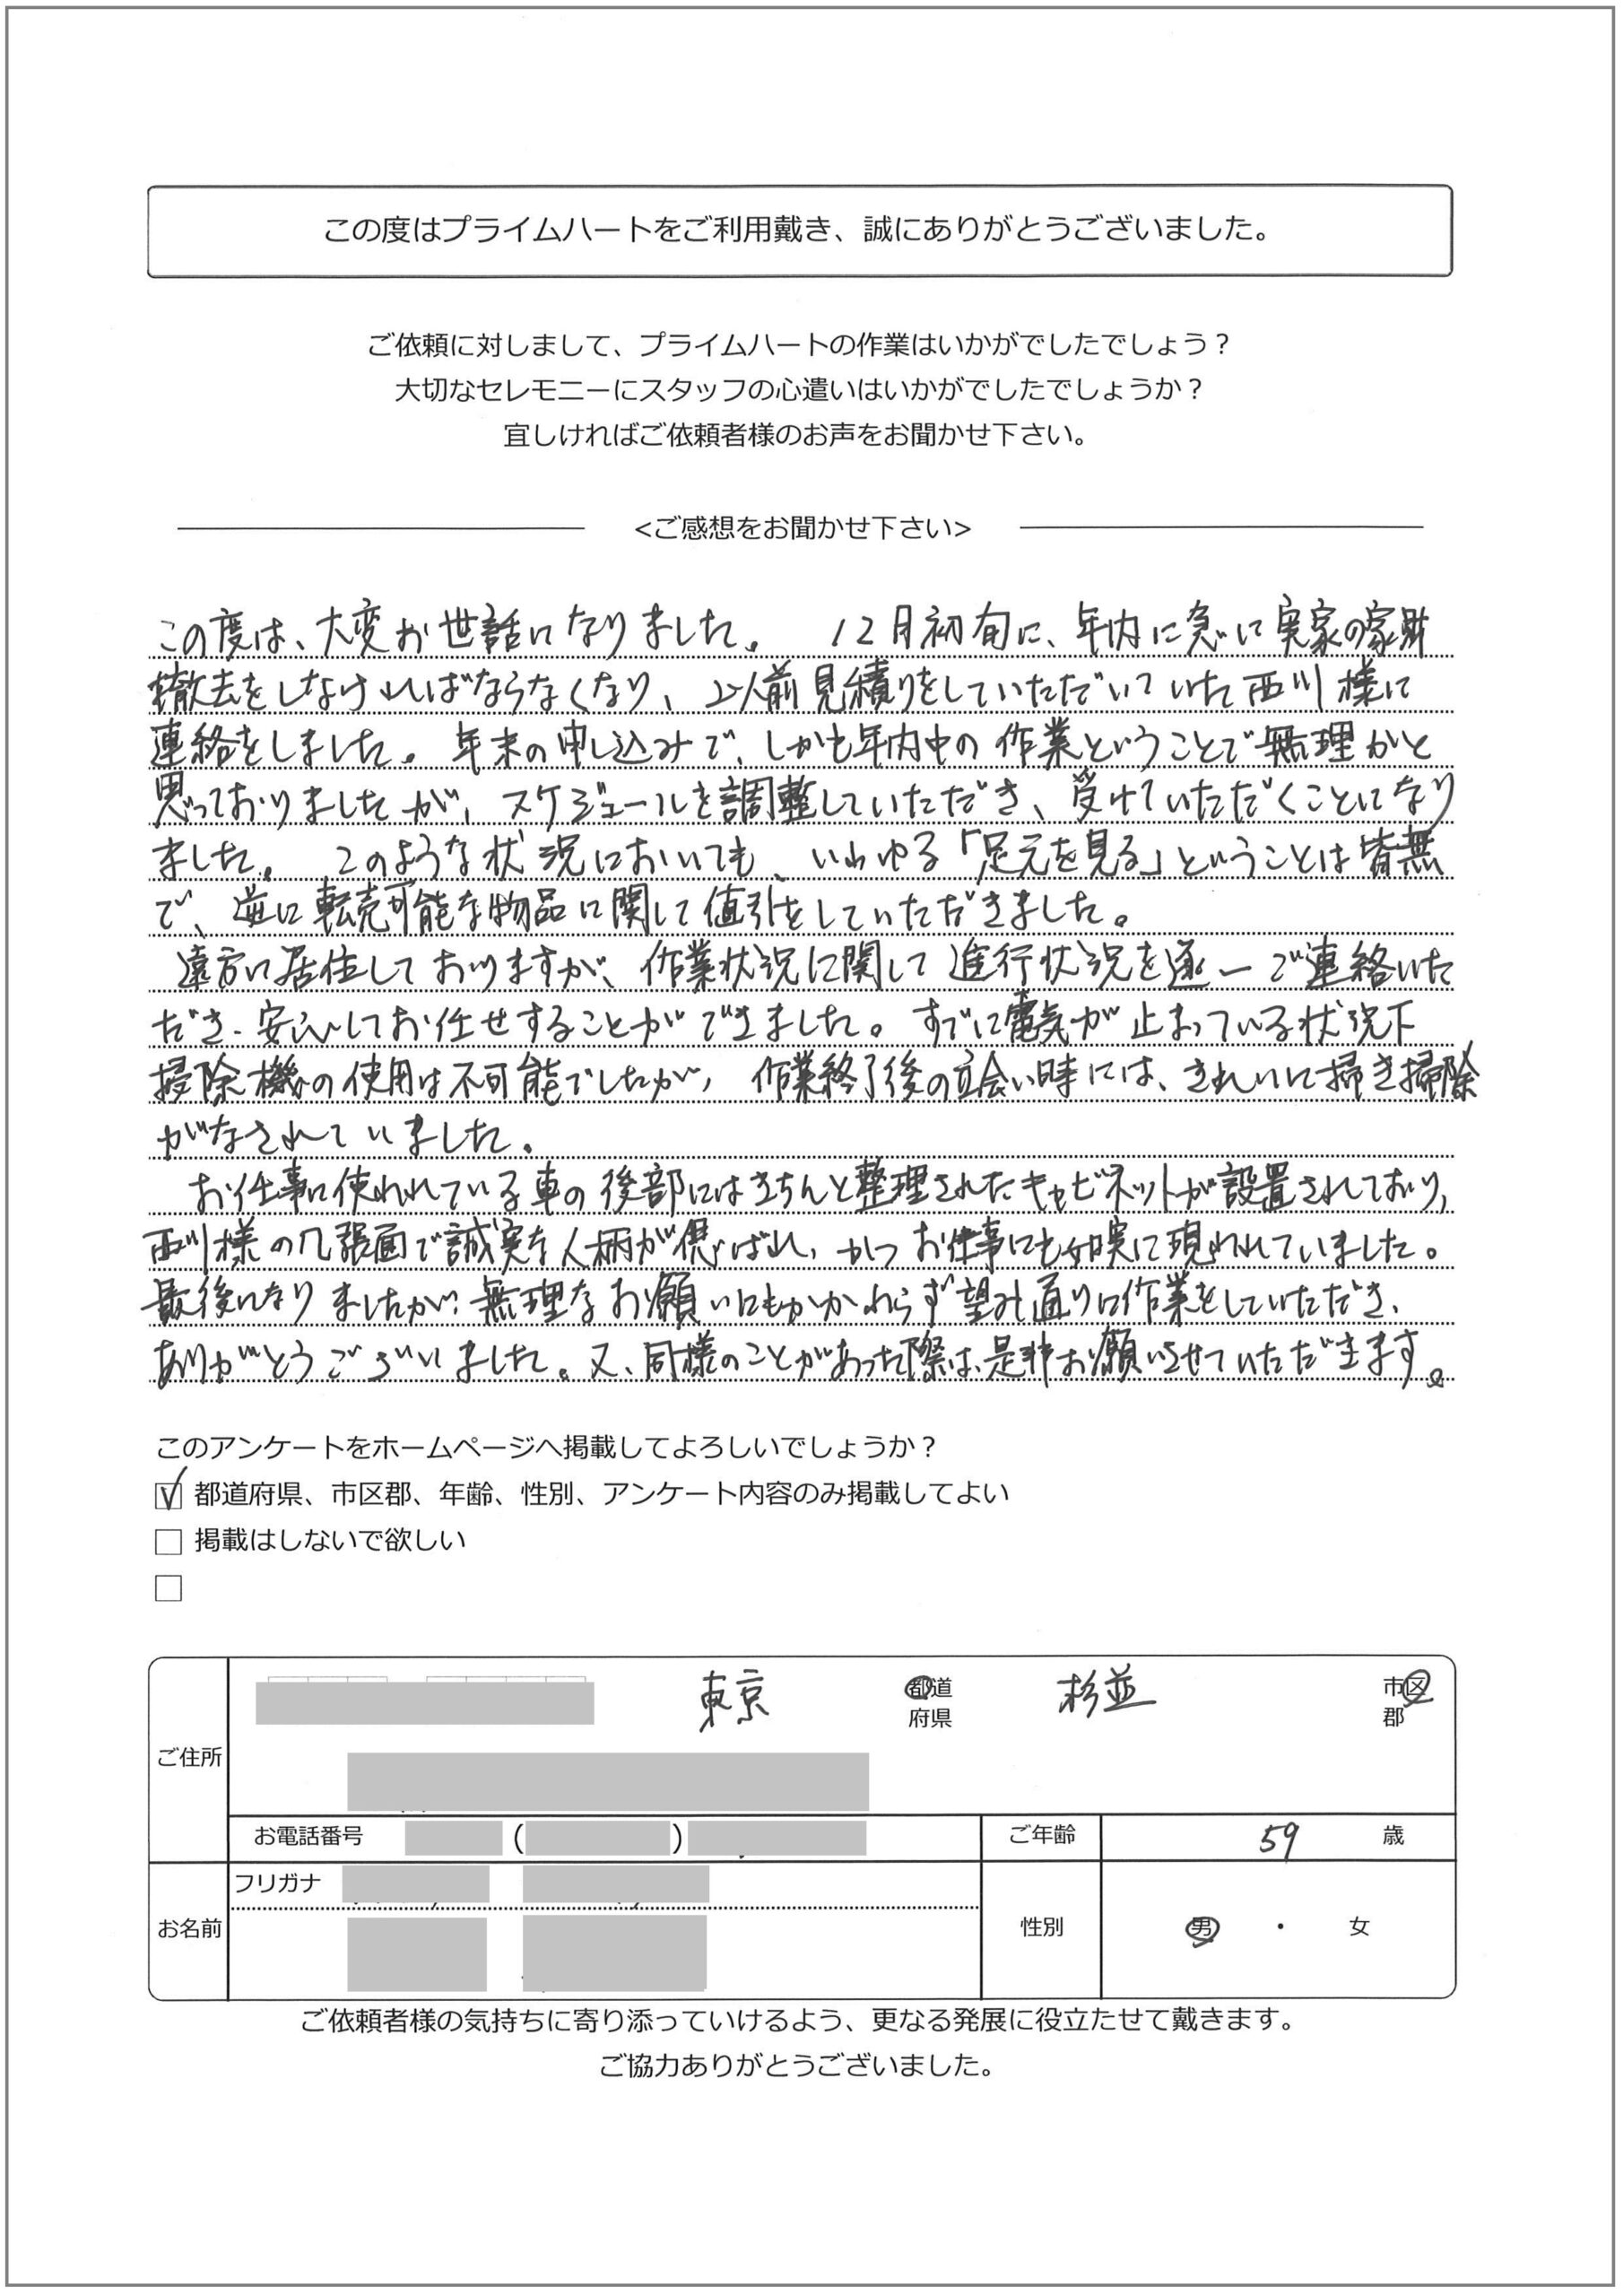 この度はプライムハートをご利用戴き、誠にありがとうございました。
ご依頼に対しまして、プライムハートの作業はいかがでしたでしょう？
大切なセレモニーにスタッフの心遣いはいかがでしたでしょうか？
宜しければご依頼者様のお声をお聞かせ下さい。
<ご感想をお聞かせ下さい>
この度は、大変お世話になりました。 12月初旬に、年内に急に実家の家財
撤去をしなければならなくなり、以前見積りをしていただいていた西川様に
連絡をしました。年末の申し込みで、しかも年内中の作業ということで無理かと
思っておりましたが、スケジュールを調整していただき、受けていただくことになり
ました。このような状況においても、いわゆる「足元を見る」ということは皆無
で、逆に転売可能な物品に関して値引をしていただきました。
遠方に居住しておりますが、作業状況に関して進行状況を逐一ご連絡いた
だき、安心してお任せすることができました。すでに電気が止まっている状況下
掃除機の使用は不可能でしたが、作業終了後の立会い時には、きれいに掃き掃除
がなされていました。
お仕事に使われている車の後部にはきちんと整理されたキャビネットが設置されており、
西川様の几張面で誠実な人柄が偲ばれ、かつお仕事にも如実に現われれていました。
最後になりましたが、無理なお願いにもかかわらず望み通りに作業をしていただき、
ありがとうございました。又、同様のことがあった際は、是非お願いさせていただきます。
このアンケートをホームページへ掲載してよろしいでしょうか？
都道府県、市区郡、年齢、性別、アンケート内容のみ掲載してよい
掲載はしないで欲しい
ご住所 東京 都道府県 杉並 市区郡
お電話番号 ( ) ご年齢 59 歳
フリガナ
お名前 性別 男 ・ 女
ご依頼者様の気持ちに寄り添っていけるよう、更なる発展に役立たせて戴きます。
ご協力ありがとうございました。